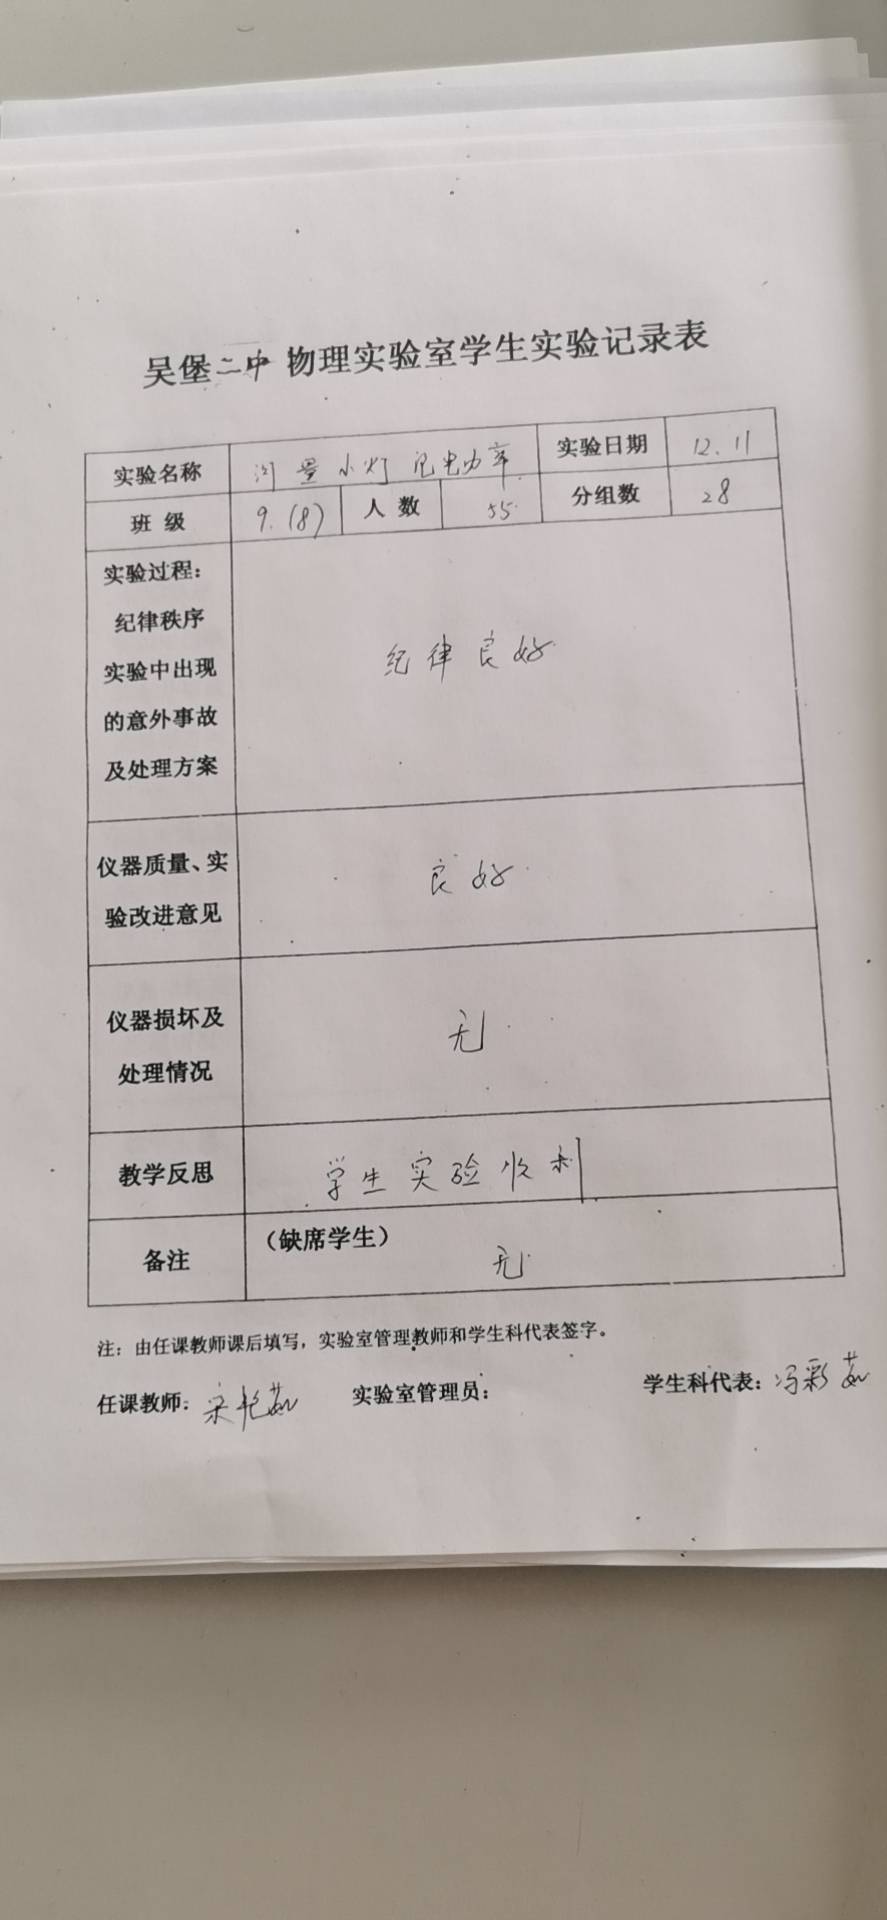 吴堡二中 物理实验室学生实验记录表
实验名称 测量小灯泡电功率 实验日期 12.11
班 级 9.(8) 人 数 55 分组数 28
实验过程:
纪律秩序
实验中出现
的意外事故
及处理方案
纪律良好
仪器质量、实
验改进意见
良好
仪器损坏及
处理情况
无
教学反思 学生实验顺利
备注 (缺席学生)
无
注: 由任课教师课后填写, 实验室管理教师和学生科代表签字。
任课教师: 宋艳茹 实验室管理员: 学生科代表: 冯彩茹